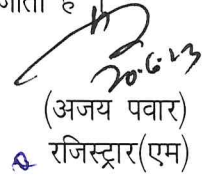 जाता है ।
20.6.23
(अजय पवार)
रजिस्ट्रार(एम)